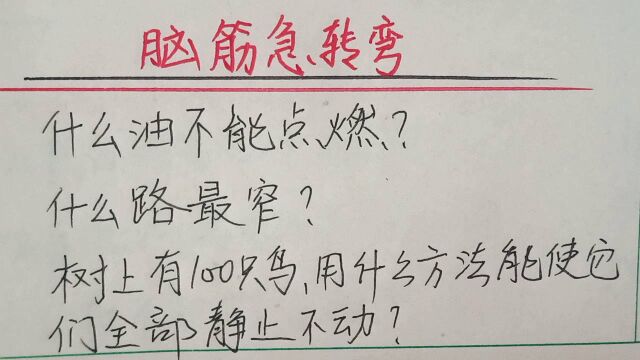 脑筋急转弯
什么油不能点燃？
什么路最窄？
树上有100只鸟,用什么方法能使它
们全部静止不动？